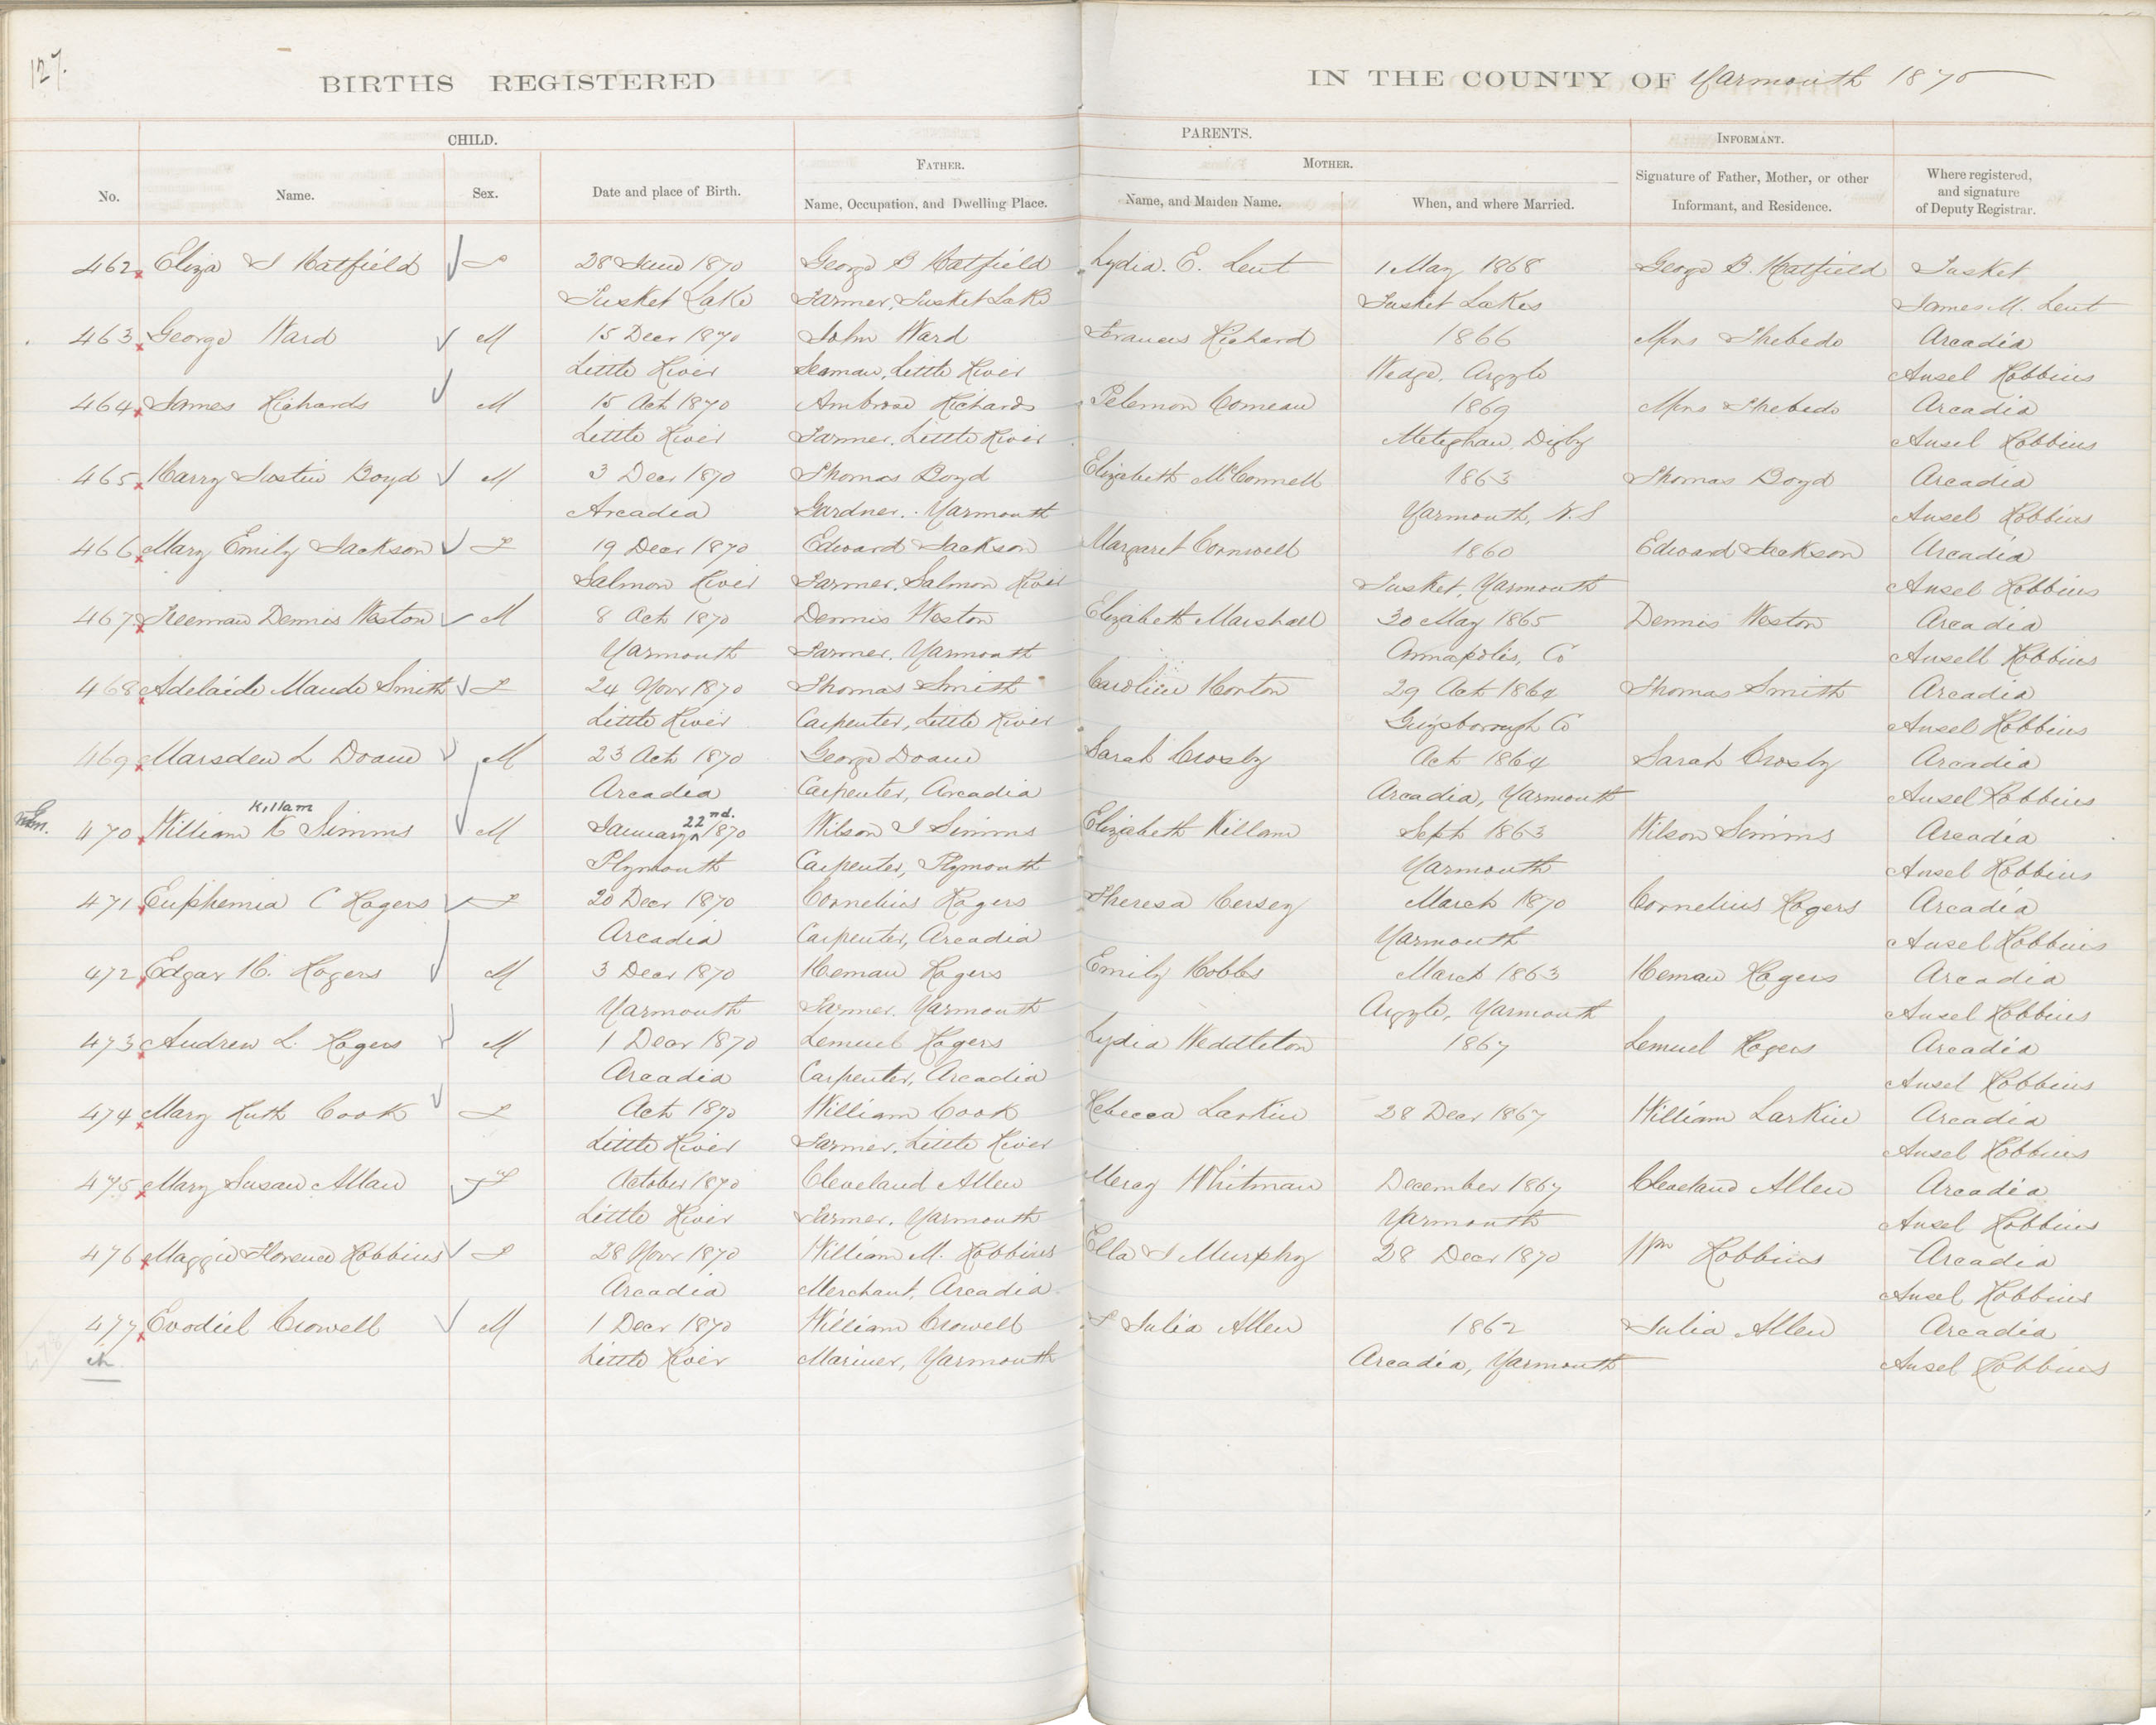 127.
BIRTHS REGISTERED IN THE COUNTY OF Yarmouth 1870
CHILD. PARENTS. INFORMANT.
FATHER. MOTHER.
No. Name. Sex. Date and place of Birth. Name, Occupation, and Dwelling Place. Name, and Maiden Name. When, and where Married. Signature of Father, Mother, or other Informant, and Residence. Where registered, and signature of Deputy Registrar.
462 Eliza J Hatfield F 28 June 1870 George B Hatfield Lydia. E. Lent 1 May 1868 George B. Hatfield Tusket
Tusket Lake Farmer, Tusket Lake Tusket Lakes James M. Lent
463 George Ward M 15 Decr 1870 John Ward Frances Richard 1866 Mrs Thebedo Arcadia
Little River Seaman, Little River Wedge, Argyle Ansel Robbins
464 James Richards M 15 Oct 1870 Ambrose Richards Pelemon Comeau 1869 Mrs Thebedo Arcadia
Little River Farmer, Little River Meteghan, Digby Ansel Robbins
465 Harry Justin Boyd M 3 Decr 1870 Thomas Boyd Elizabeth McConnell 1863 Thomas Boyd Arcadia
Arcadia Gardner. Yarmouth Yarmouth, N.S Ansel Robbins
466 Mary Emily Jackson F 19 Decr 1870 Edward Jackson Margaret Cornwell 1860 Edward Jackson Arcadia
Salmon River Farmer, Salmon River Tusket, Yarmouth Ansel Robbins
467 Freeman Dennis Weston M 8 Oct 1870 Dennis Weston Elizabeth Marshall 30 May 1865 Dennis Weston Arcadia
Yarmouth Farmer. Yarmouth Annapolis, Co Ansell Robbins
468 Adelaide Maude Smith F 24 Novr 1870 Thomas Smith Caroline Horton 29 Oct 1864 Thomas Smith Arcadia
Little River Carpenter, Little River Guysborough Co Ansel Robbins
469 Marsden L Doane M 23 Oct 1870 George Doane Sarah Crosby Oct 1864 Sarah Crosby Arcadia
Arcadia Carpenter, Arcadia Arcadia, Yarmouth Ansel Robbins
Killam 22nd.
470 William K Simms M January 1870 Wilson J Simms Elizabeth Killam Sept 1863 Wilson Simms Arcadia
Plymouth Carpenter, Plymouth Yarmouth Ansel Robbins
471 Euphemia C Rogers F 20 Decr 1870 Cornelius Rogers Theresa Hersey March 1870 Cornelius Rogers Arcadia
Arcadia Carpenter, Arcadia Yarmouth Ansel Robbins
472 Edgar H. Rogers M 3 Decr 1870 Heman Rogers Emily Hobbs March 1863 Heman Rogers Arcadia
Yarmouth Farmer, Yarmouth Argyle, Yarmouth Ansel Robbins
473 Andrew L. Rogers M 1 Decr 1870 Lemuel Rogers Lydia Weddleton 1867 Lemuel Rogers Arcadia
Arcadia Carpenter, Arcadia Ansel Robbins
474 Mary Ruth Cook F Oct 1870 William Cook Rebecca Larkin 28 Decr 1867 William Larkin Arcadia
Little River Farmer, Little River Ansel Robbins
475 Mary Susan Allan F October 1870 Cleveland Allen Mercy Whitman December 1867 Cleveland Allen Arcadia
Little River Farmer. Yarmouth Yarmouth Ansel Robbins
476 Maggie Florence Robbins F 28 Novr 1870 William M. Robbins Ella J Murphy 28 Decr 1870 Wm Robbins Arcadia
Arcadia Merchant, Arcadia Ansel Robbins
477 Evodiel Crowell M 1 Decr 1870 William Crowell Julia Allen 1862 Julia Allen Arcadia
Little River Mariner, Yarmouth Arcadia, Yarmouth Ansel Robbins